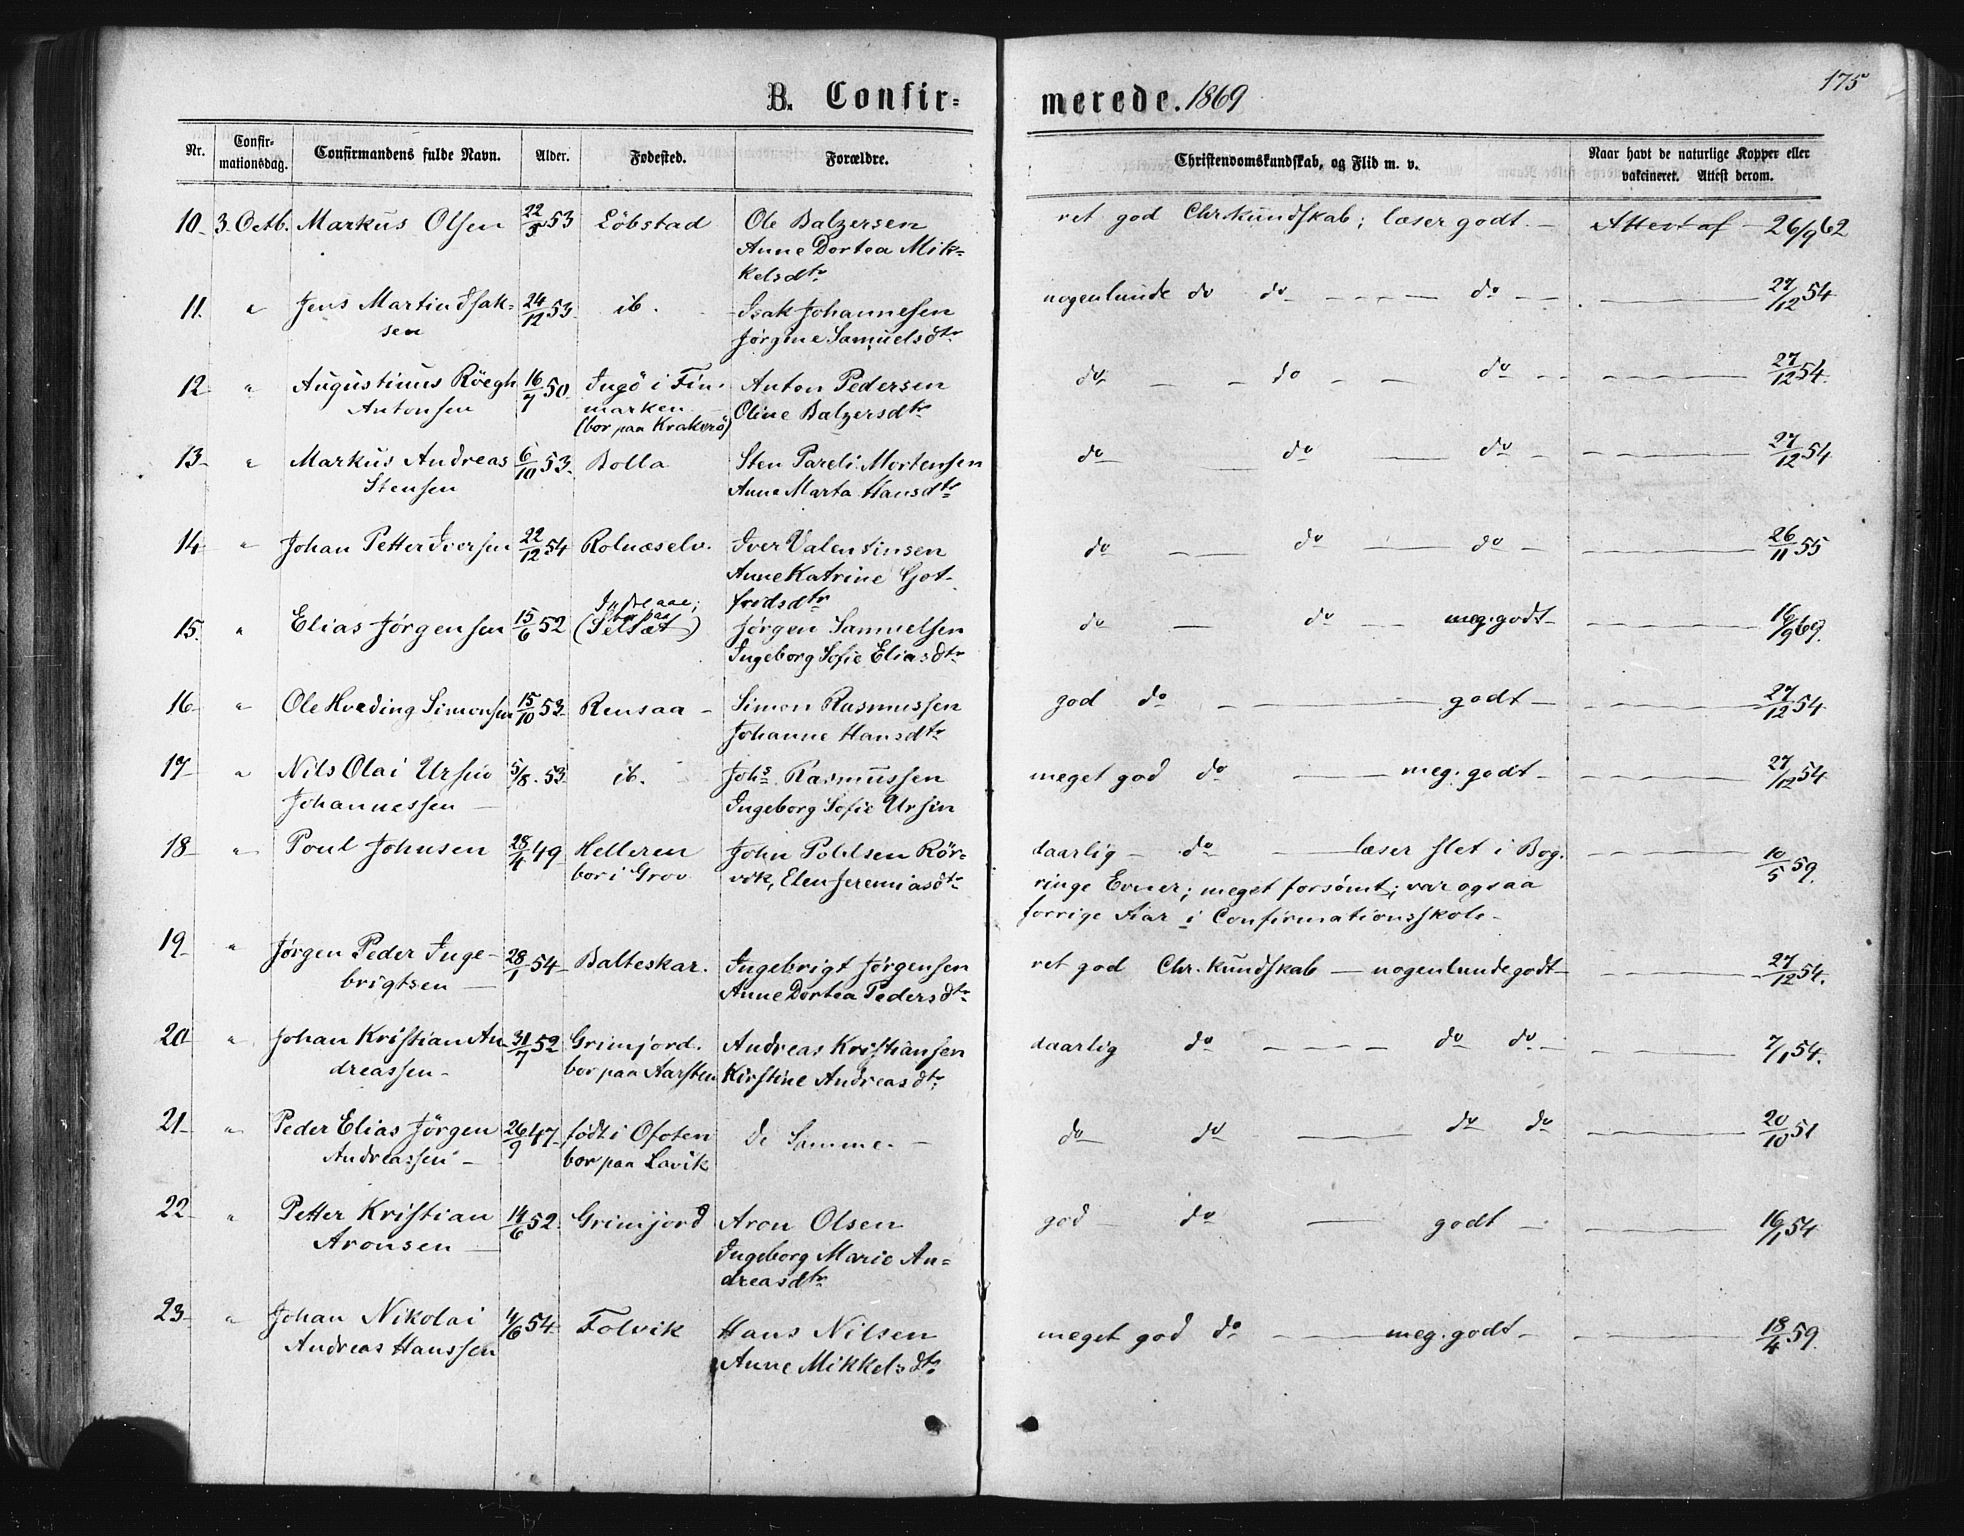 175
B. Confir-merede. 1869
Nr. Confir-mationsdag. Confirmandens fulde Navn. Alder. Fødested. Forældre. Christendomskundskab, og Flid m. v. Naar havt de naturlige Kopper eller vakcineret. Attest derom.
10 3. Octb. Markus Olsen 22/3 53 Löbstad Ole Balzersen ret god Chr.kundskab; læser godt. — Attest af — 26/9 62
Anne Dortea Mik-
kelsdtr
11. " Jens Martin Isak- 24/12 53 ib. Isak Johannesen nogenlunde do do — do — 27/12 54
sen Jørgine Samuelsdtr
12 " Augustinus Röegh 16/7 50 Ingö i Fin- Anton Pedersen do — do — do — 27/12 54
Antonsen marken Oline Balzersdtr
(bor paa Krakerö)
13 " Markus Andreas 6/10 53 Bolla Sten Pareli Mortensen do — do — do — 27/12 54
Stensen Anne Marta Hansdtr
14 " Johan Petter Iversen 22/12 54 Rolnæselv. Iver Valentinsen do — do — do — 26/11 55
Anne Katrine Got-
fridsdtr
15. " Elias Jørgensen 15/6 52 (bor paa Selsæt) Jørgen Samuelsen do — do — meg. godt — 16/9 69.
Ingeborg Sofie Eliasdtr
16 " Ole Hveding Simonsen 15/10 53 Rensaa Simon Rasmussen god do — godt — 27/12 54
Johanne Hansdtr
17 " Nils Olai Ursin 5/8. 53 ib. Johs. Rasmussen meget god do — meg. godt — 27/12 54
Johannessen Ingeborg Sofie Ursin
18 " Poul Johnsen 28/4 49 Helleren John Poldsen Rör- daarlig — do — læser slet i Bog. — 10/5 59.
bor i Grov vik, Elen Jeremiasdtr ringe Evner; meget forsömt; var ogsaa
forrige Aar i Confirmationsskole —
19 " Jørgen Peder Inge- 28/1 54 Balteskar. Ingebrigt Jørgensen ret god Chr. kundskab — nogenlunde godt — 27/12 54.
brigtsen — Anne Dortea Pedersdtr
20 " Johan Kristian An- 31/7 52 Grimjord. Andreas Kristiansen daarlig do — do do — 7/1 54.
dreassen — bor paa Aarsten Kirstine Andreasdtr
21 " Peder Elias Jörgen 26/9 47 född i Ofoten de Samme. — do do — do do — 20/10 51
Andreassen — bor paa Lavik
22 " Petter Kristian 14/6 52 Grimjord Aron Olsen god do — godt — 16/1 54
Aronsen — Ingeborg Marie An-
dreasdtr
23 " Johan Nikolai 4/6 54 Folvik Hans Nilsen meget god do — meg. godt — 18/4 59.
Andreas Hanssen Anne Mikkelsdtr